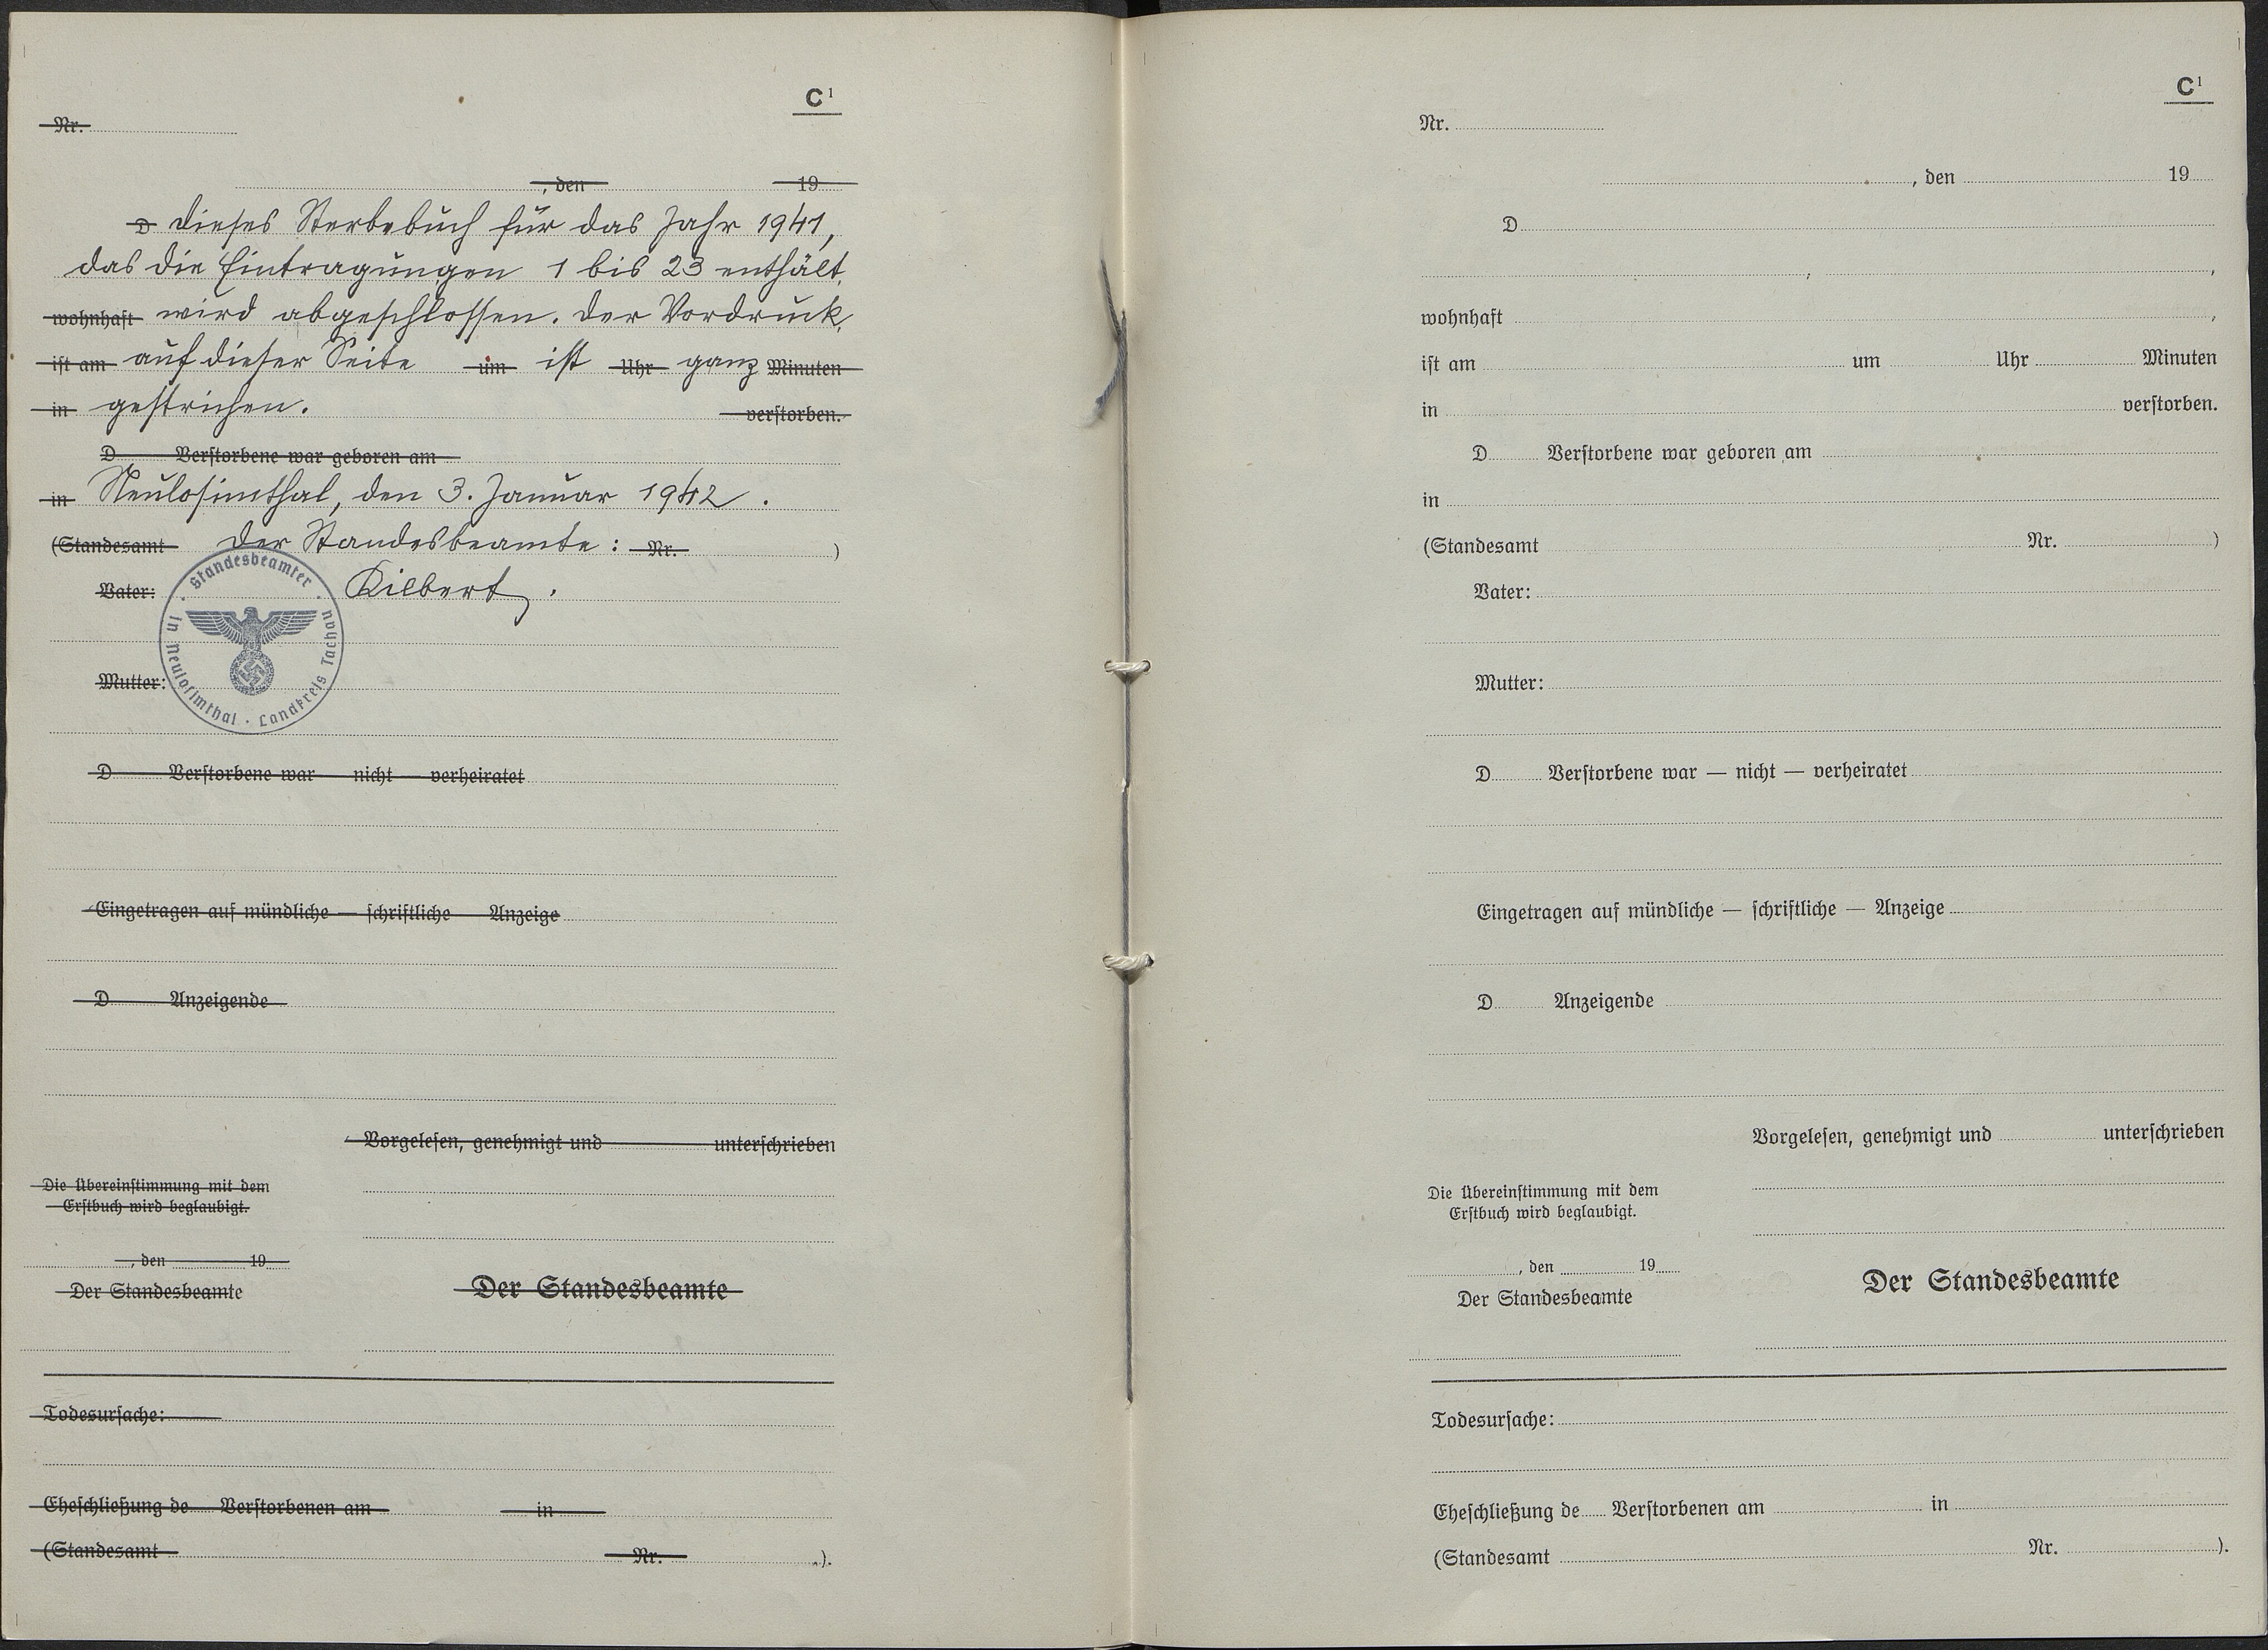 C¹
Nr.
, den 19
D dieses Sterbebuch für das Jahr 1941,
das die Eintragungen 1 bis 23 enthält,
wohnhaft wird abgeschlossen. Der Vordruck,
ist am auf dieser Seite um ist Uhr ganz Minuten
in gestrichen. verstorben.
D Verstorbene war geboren am
in Neulosimthal, den 3. Januar 1942.
(Standesamt Der Standesbeamte: Nr. )
Vater: Kilbert.
· Standesbeamter · in Neulosimthal · Landkreis Tachau
Mutter:
D Verstorbene war — nicht — verheiratet
Eingetragen auf mündliche — schriftliche — Anzeige
D Anzeigende
Vorgelesen, genehmigt und unterschrieben
Die Übereinstimmung mit dem
Erstbuch wird beglaubigt.
, den 19
Der Standesbeamte
Der Standesbeamte
Todesursache:
Eheschließung de Verstorbenen am in
(Standesamt Nr. ).
C¹
Nr.
, den 19
D
, ,
wohnhaft ,
ist am um Uhr Minuten
in verstorben.
D Verstorbene war geboren am
in
(Standesamt Nr. )
Vater:
Mutter:
D Verstorbene war — nicht — verheiratet
Eingetragen auf mündliche — schriftliche — Anzeige
D Anzeigende
Vorgelesen, genehmigt und unterschrieben
Die Übereinstimmung mit dem
Erstbuch wird beglaubigt.
, den 19
Der Standesbeamte
Der Standesbeamte
Todesursache:
Eheschließung de Verstorbenen am in
(Standesamt Nr. ).